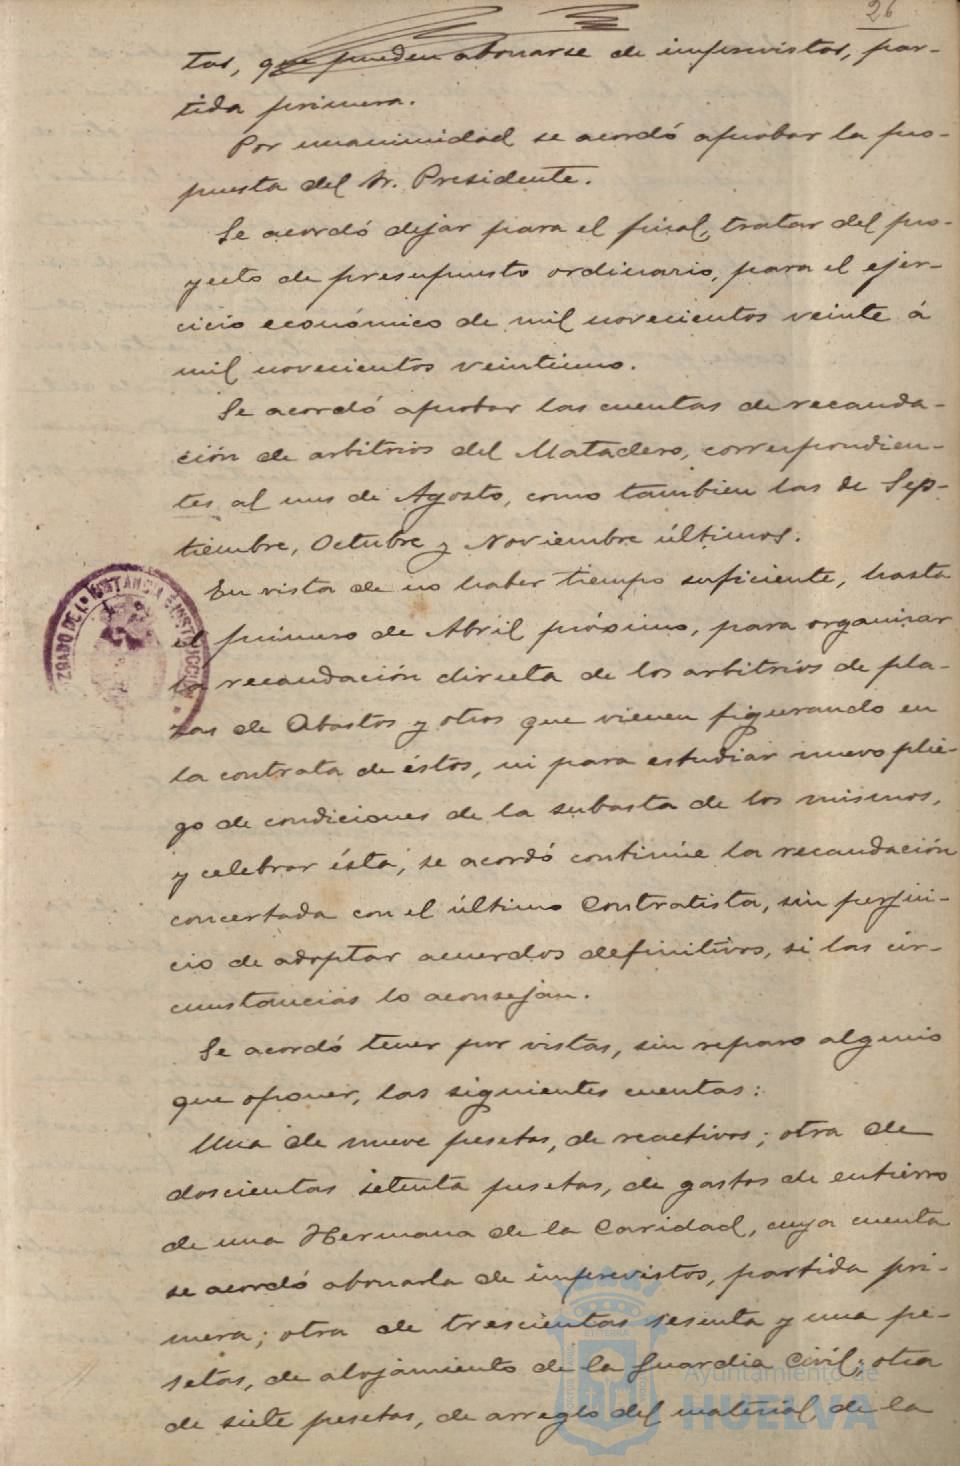 26
tas, que pueden abonarse de imprevistos, par-
tida primera.
Por unanimidad se acordó aprobar la pro-
puesta del Sr. Presidente.
Se acordó dejar para el final, tratar del pro-
yecto de presupuesto ordinario, para el ejer-
cicio económico de mil novecientos veinte á
mil novecientos veintiuno.
Se acordó aprobar las cuentas de recauda-
ción de arbitrios del Matadero, correspondien-
tes al mes de Agosto, como tambien las de Sep-
tiembre, Octubre y Noviembre últimos.
En vista de no haber tiempo suficiente, hasta
el primero de Abril próximo, para organizar
la recaudación directa de los arbitrios de pla-
zas de Abastos y otros que vienen figurando en
la contrata de éstos, ni para estudiar nuevo plie-
go de condiciones de la subasta de los mismos,
y celebrar ésta, se acordó continúe la recaudación
concertada con el último Contratista, sin perjui-
cio de adoptar acuerdos definitivos, si las cir-
cunstancias lo aconsejan.
Se acordó tener por vistas, sin reparo alguno
que oponer, las siguientes cuentas:
Una de nueve pesetas, de reactivos; otra de
doscientas setenta pesetas, de gastos de entierro
de una Hermana de la Caridad, cuya cuenta
se acordó abonarla de imprevistos, partida pri-
mera; otra de trescientas sesenta y una pe-
setas, de alojamiento de la Guardia Civil; otra
de siete pesetas, de arreglo del material de la
ZGADO DE 1ª INSTANCIA E INSTRUCCIÓN
Ayuntamiento de
HUELVA